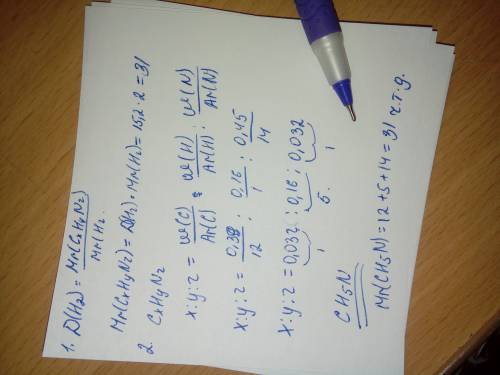 1. D(H₂) = Mr(CxHyNz)
Mr(H₂
Mr(CxHyNz) = D(H₂) · Mr(H₂) = 15,2 · 2 = 31
2. CxHyNz
x : y : z = w(C) : w(H) : w(N)
Ar(C) Ar(H) Ar(N)
x : y : z = 0,39 : 0,16 : 0,45
12 1 14
x : y : z = 0,032 : 0,16 : 0,032
1 5. 1
CH₅N
Mr(CH₅N) = 12 + 5 + 14 = 31 ч.т.д.